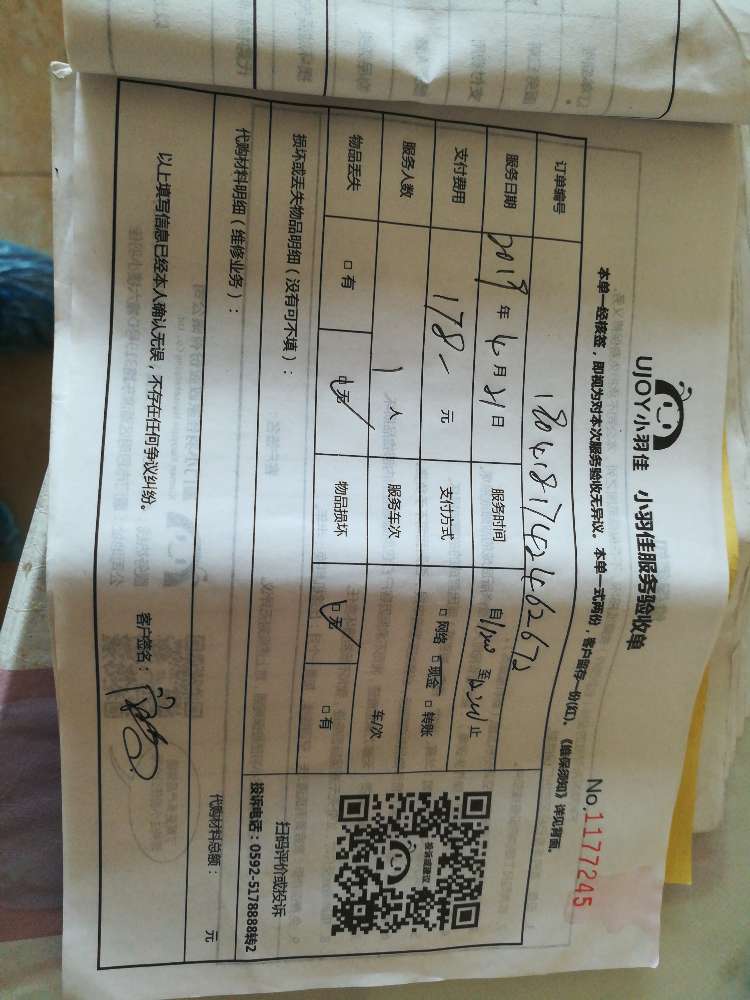 UJOY小羽佳 小羽佳服务验收单
No.1177245
本单一经核签，即视为对本次服务验收无异议。本单一式两份，客户留存一份(红)。《维保须知》详见背面。
订单编号
服务日期 2019年4月21日 服务时间 自 至 止
支付费用 178- 元 支付方式 □网络 □现金 □转账
服务人数 1人 服务车次 车/次
物品丢失 □有 □无 物品损坏 □无 □有
损坏或丢失物品明细（没有可不填）：
代购材料明细（维修业务）： 代购材料总额： 元
以上填写信息已经本人确认无误，不存在任何争议纠纷。 客户签名：
投诉或建议
扫码评价或投诉
投诉电话：0592-5178888转2